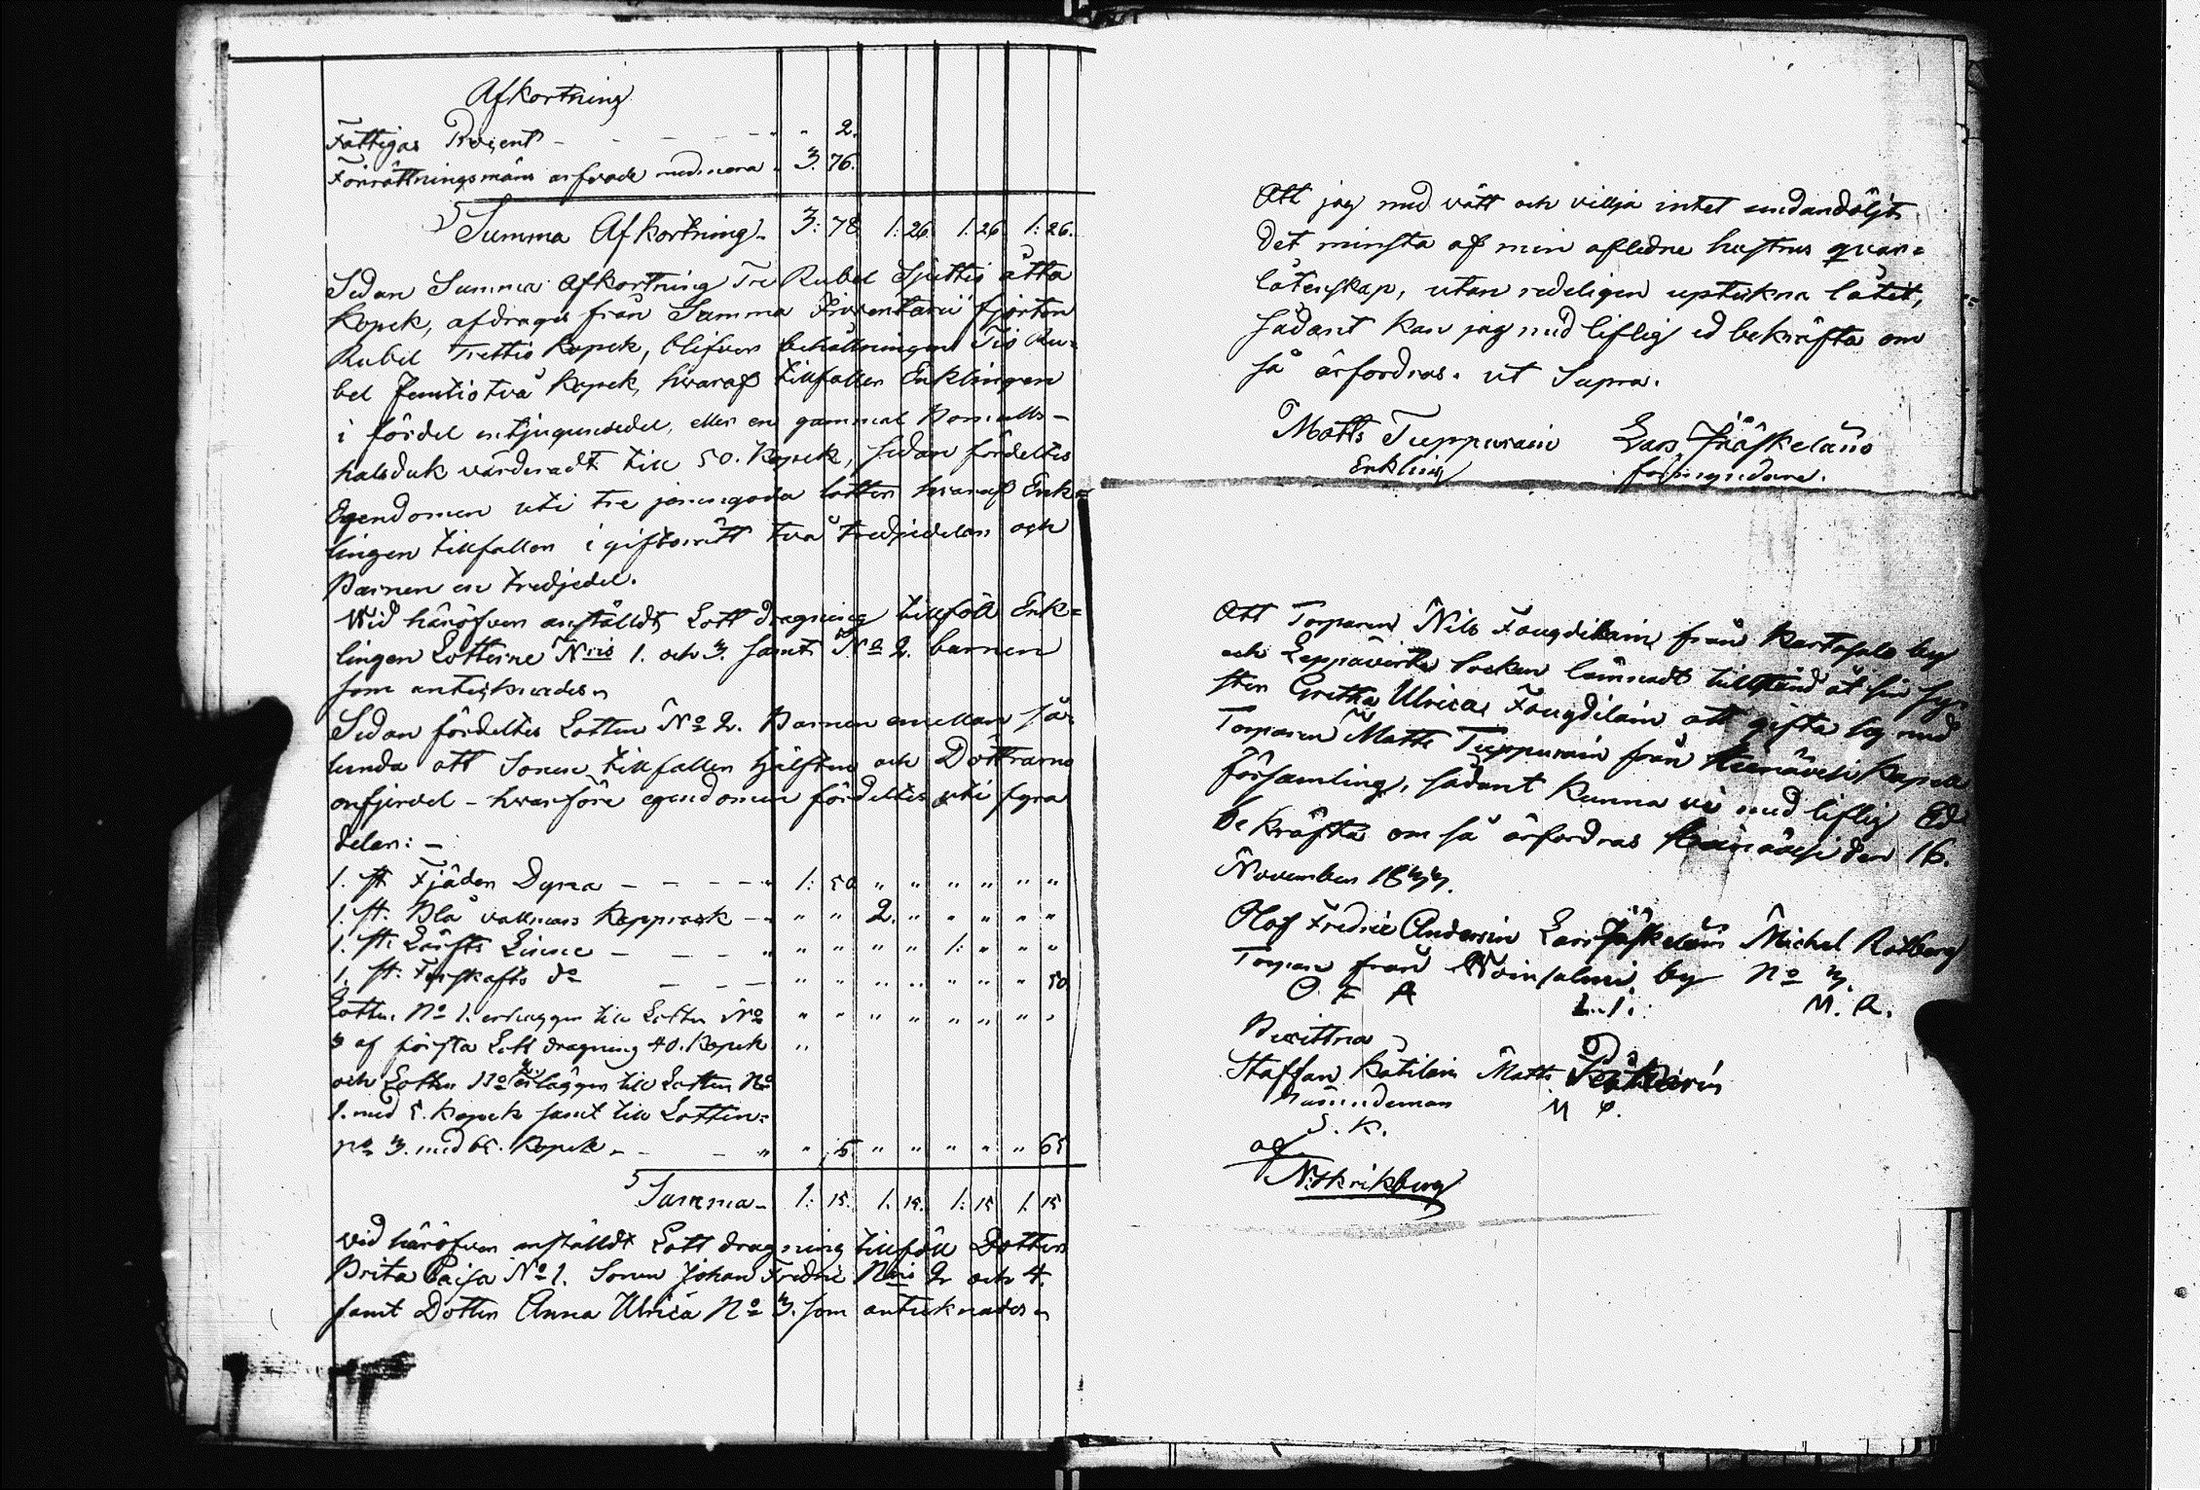 Afkortning
Fattigas Procent - - - - - " 2.
Förrättningsmäns arfvode med mera . 3. 76.
Summa Afkortning - 3: 78 1: 26 1: 26 1: 26.
Sedan Summa Afkortning Tre Rubel Sjuttio åtta
Kopek, afdrages från Summa Inventarii fjorton
Rubel Trettio Kopek, blifver behållningen Tio Ru=
bel femtio två Kopek, hvaraf tillfaller Enklingen
i fördel en, eller en gammal Bomulls-
halsduk värderadt till 50. Kopek, sedan fördeltes
Egendomen uti tre jemngoda lotter hvaraf Enk=
lingen tillfaller i giftorätt två tredjedelar och
Barnen en tredjedel.
Wid häröfver anställdt Lott dragning tillföll Enk=
lingen Lotterne Nris 1. och 3. samt No 2. barnen
som antecknades.
Sedan fördeltes Lotten No 2. Barnen emellan så-
lunda att Sonen tillfaller hälften och Döttrarne
en fjerdel - hvarföre egendomen fördeltes uti fyra
delar: -
1. st Fjäder Dyna - - - - " 1: 50 " " " " " "
1. st. Blå vallmars Kapprock - " " " 2. " " " " "
1. st. Lärfts Linne - - - - " " " " " 1: " " "
1. st. skafts do - - - " " " " " " " 50
Lotten No 1. erlägger till Lotten No " " " " " " " "
3 af första Lott dragning 40. Kopek "
och Lotten No erlägger till Lotten No
1. med 5. Kopek samt till Lotten
No 3. med 65. Kopek - - - " " 5 " " " " " 65
Summa - 1: 15. 1. 15. 1: 15 1. 15
Vid häröfver anställdt Lott dragning tillföll Dottren
Brita Caisa No 1. Sonen Johan Fredric Nris 2 och 4.
samt Dottren Anna Ulrica No 3. som antecknades.
Att jag med vätt och vilja intet undandöljt
det minsta af min aflidne hustrus qvar=
låtenskap, utan redeligen upteckna låtit,
sådant kan jag med liflig ed bekräfta om
så ärfordras. ut Supra.
Matts Tuppurain Lars Jäskeläin
Enkling förmyndare.
Att Torparen Nils Fougdilain från Kartasalo by
och Leppävirta Socken lämnadt tillstånd åt sin sy=
ster Gretha Ulrica Fougdilain att gifta sig med
Torparen Matts Tuppurain från Heinävesi Kapell
församling, sådant kunna vi med liflig Ed
bekräfta om så ärfordras Heinävesi den 16.
November 1877.
Olof Fredric Andersin Lars Jäskeläin Michel Rotberg
Torpare från salmi by No 3.
O F A L. J. M. R.
Bevittna
Staffan Kätilain Matts
Nämndeman M P.
S. K.
af
N: